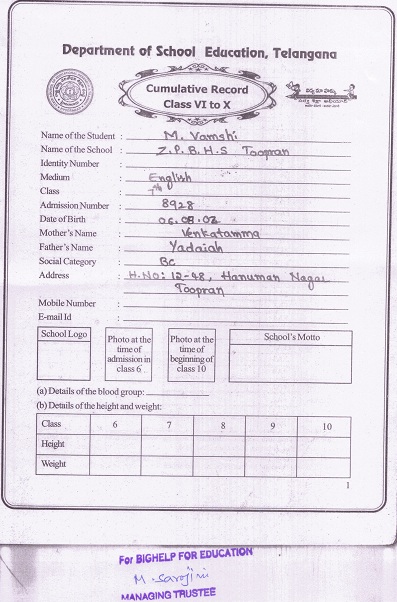 Department of School Education, Telangana
Cumulative Record
Class VI to X
Name of the Student : M. Vamshi
Name of the School : Z.P.B.H.S Toopran
Identity Number :
Medium : English
Class : 7th
Admission Number : 8928
Date of Birth : 06.08.02
Mother's Name : Venkatamma
Father's Name : Yadaiah
Social Category : BC
Address : H.No: 12-48, Hanuman Nagar
Toopran
Mobile Number :
E-mail Id :
School Logo
Photo at the time of admission in class 6
Photo at the time of beginning of class 10
School's Motto
(a) Details of the blood group:
(b) Details of the height and weight:
Class 6 7 8 9 10
Height
Weight
1
For BIGHELP FOR EDUCATION
M. Sarojini
MANAGING TRUSTEE